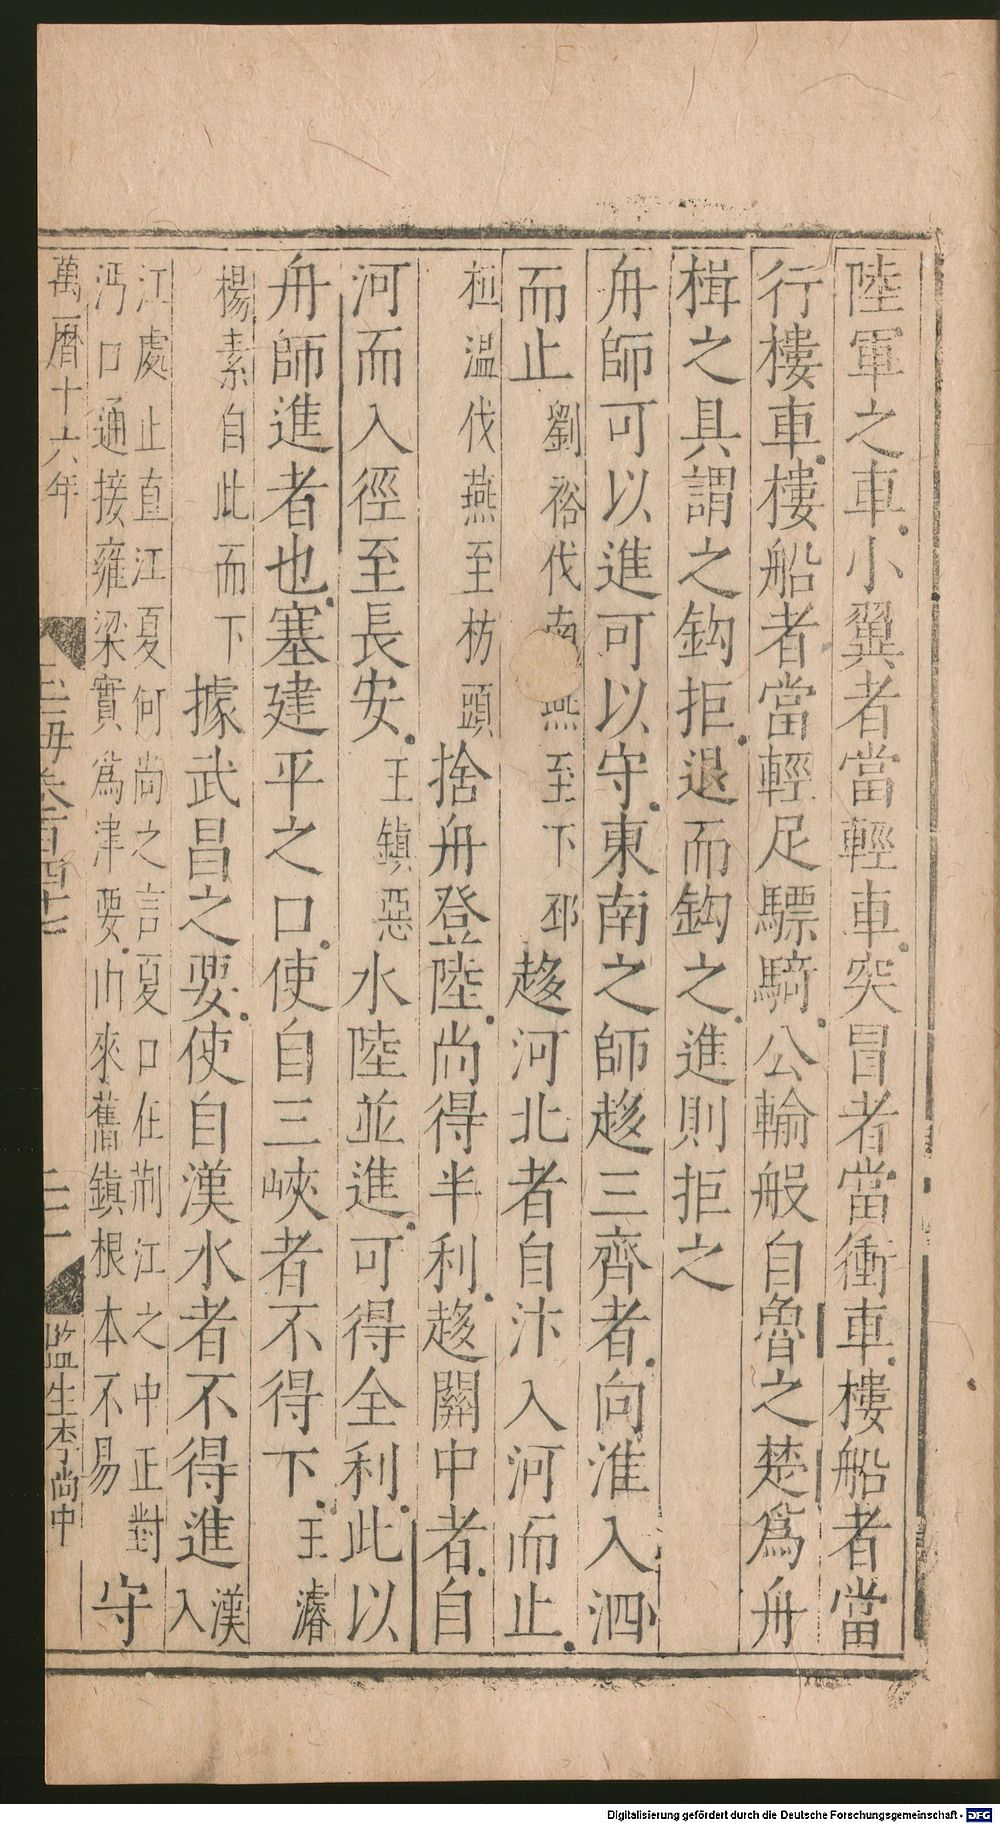 陸軍之車小翼者當輕車突冒者當衝車樓船者當
行樓車樓船者當輕足驃騎公輸般自魯之楚爲舟
楫之具謂之鈎拒退而鈎之進則拒之
舟師可以進可以守東南之師趍三齊者向淮入泗
而止劉裕伐南燕至下邳趍河北者自汴入河而止
桓温伐燕至枋頭捨舟登陸尚得半利趍關中者自
河而入徑至長安王鎮惡水陸並進可得全利此以
舟師進者也塞建平之口使自三峽者不得下王濬
楊素自此而下據武昌之要使自漢水者不得進漢入
江處止直江夏何尚之言夏口在荆江之中正對
沔口通接雍梁實爲津要由來舊鎮根本不易守
萬曆十六年
玉海卷百四十七
二十一
監生李尚中
Digitalisierung gefördert durch die Deutsche Forschungsgemeinschaft - DFG